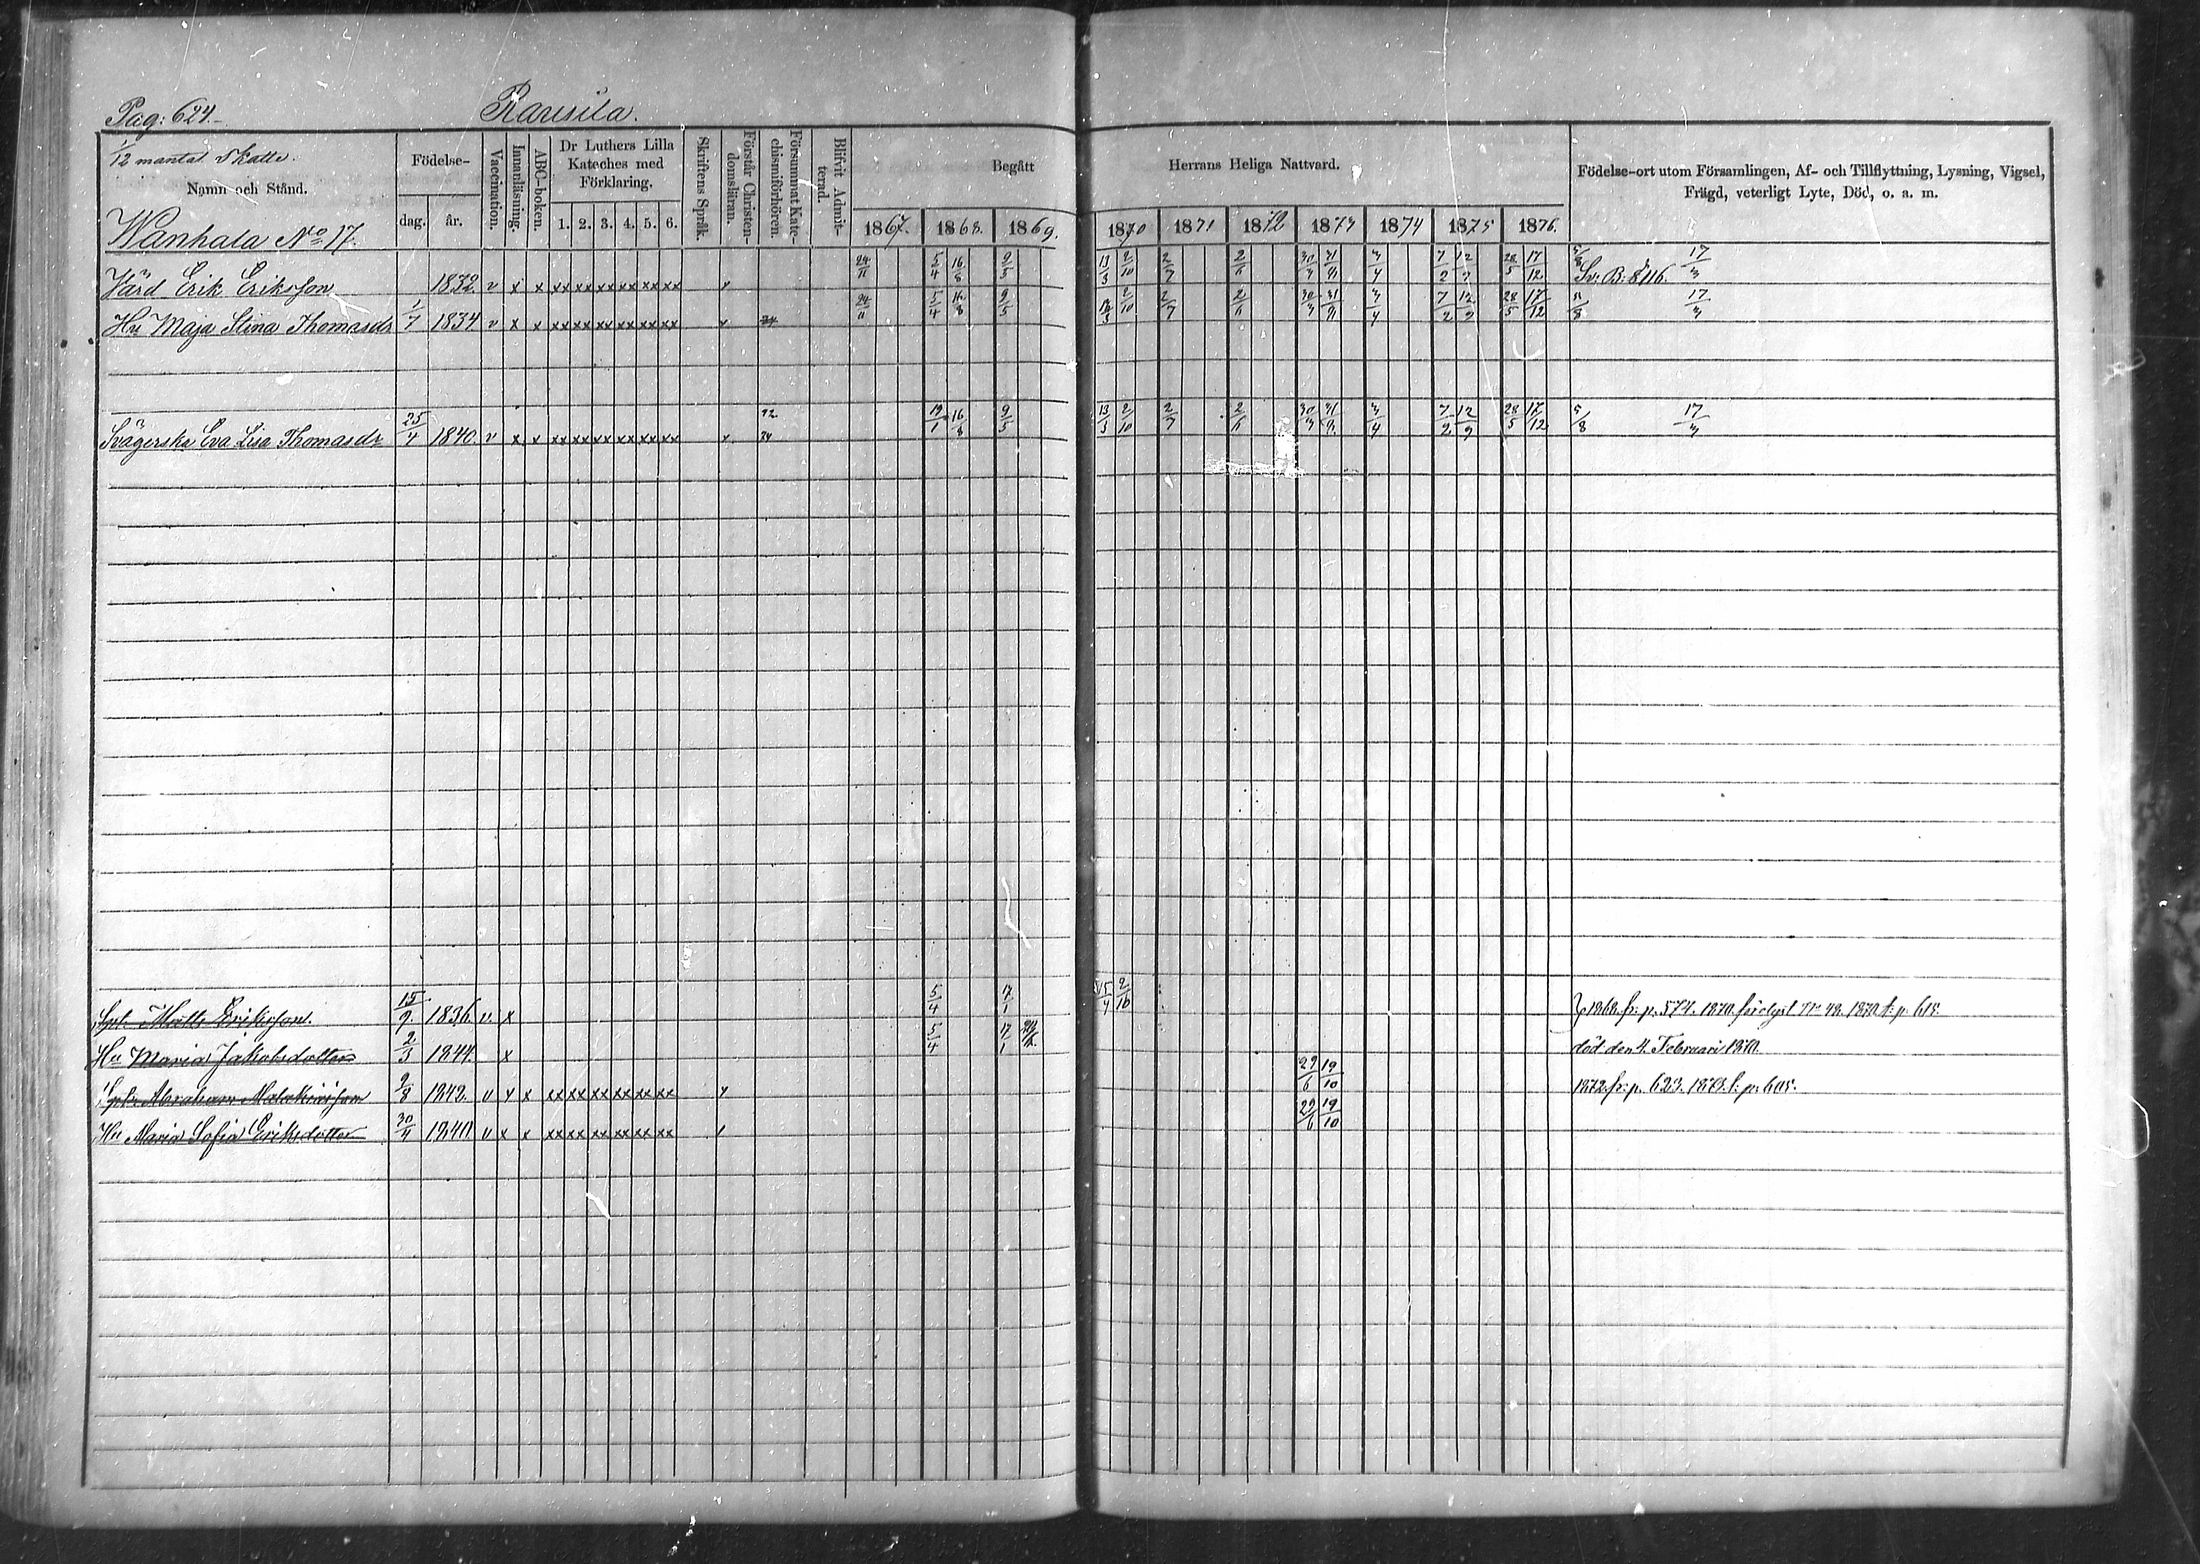 Pag: 624.
Rausila.
1/12 mantal Skatte.
Namn och Stånd.
Wanhala No 17.
Födelse-
dag. år.
Vaccination.
Innanläsning.
ABC-boken.
Dr Luthers Lilla
Kateches med
Förklaring.
1. 2. 3. 4. 5. 6.
Skriftens Språk.
Förstår Christen-
domsläran.
Försummat Kate-
chismiförhören.
Blifvit Admit-
terad.
Begått Herrans Heliga Nattvard.
1867. 1868. 1869. 1870 1871 1872 1873 1874 1875 1876.
Födelse-ort utom Församlingen, Af- och Tillflyttning, Lysning, Vigsel,
Frägd, veterligt Lyte, Död, o. a. m.
Värd Erik Eriksson 1832. v x x xx xx xx xx xx xx x 24/11 5/4 16/8 9/5 13/3 2/10 2/7 2/6 30/3 31/8 3/4 7/2 12/9 28/5 17/12 5/8 Sv: B: § 116. 17/3
Hu Maja Stina Thomasdr 1/7 1834 v x x xx xx xx xx xx xx x 24/11 5/4 16/8 9/5 13/3 2/10 2/7 2/6 30/3 31/8 3/4 7/2 12/9 28/5 17/12 5/8 17/3
Svägerska Eva Lisa Thomasdr 25/4 1840. v x x xx xx xx xx xx xx x 72 74 19/1 16/8 9/5 13/3 2/10 2/7 2/6 30/3 31/8 3/4 7/2 12/9 28/5 17/12 5/8 17/3
Matts Eriksson. 15/9 1836 v x 5/4 17/1 2/10 1868. fr: p. 574. 1870 förlyst No 48. 1870 t: p. 615.
Hu Maria Jakobsdotter 2/3 1844. x 5/4 17/1 död den 4. Februari 1870.
Abraham Malakiasson 9/8 1842. v x x xx xx xx xx xx xx x 29/6 19/10 1872. fr: p. 623. 1873. t: p. 605.
Hu Maria Sofia Eriksdotter 30/4 1840 v x x xx xx xx xx xx xx 29/6 19/10